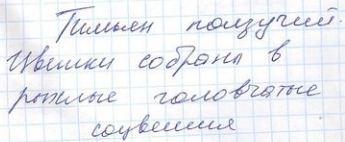 Тимьян ползучий.
Цветки собраны в
рыхлые головчатые
соцветия